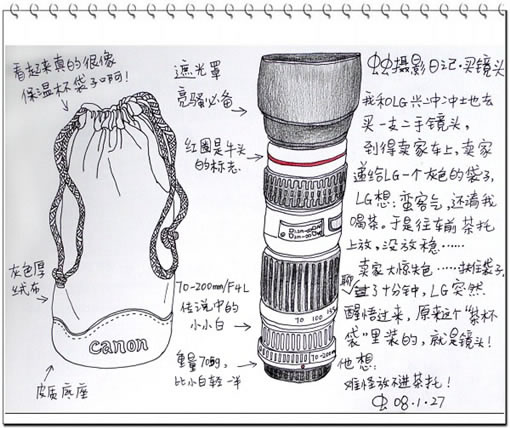 看起来真的很像
保温杯袋子啊!
灰色厚
绒布
canon
皮质底座
遮光罩
亮骚必备
红圈是牛头
的标志
70-200mm/F4L
传说中的
小小白
重量705g,
比小白轻一半
70 100
70-200
虫虫摄影日记·买镜头
我和LG兴冲冲地去
买一支二手镜头,
到得卖家车上,卖家
递给LG一个灰色的袋子,
LG想:蛮客气,还请我
喝茶。于是往车前茶托
上放,没放稳……
卖家大惊失色……扶住袋子,
聊过了十分钟,LG突然
醒悟过来,原来这个“茶杯
袋”里装的,就是镜头!
他想:
难怪放不进茶托!
虫 08.1.27